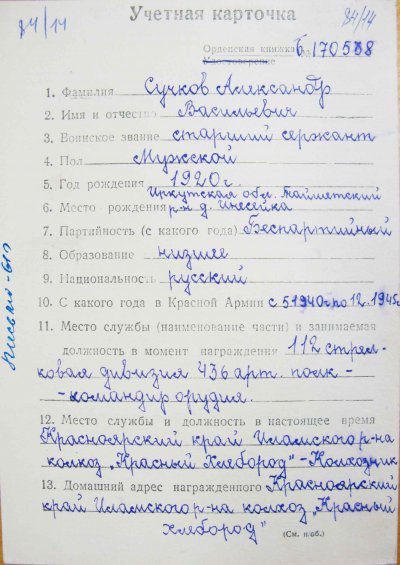 84/14
Учетная карточка
84/14
Орденская книжка Б 170568
Удостоверение
1. Фамилия Сучков Александр
2. Имя и отчество Васильевич
3. Воинское звание старший сержант
4. Пол Мужской
5. Год рождения 1920 г.
Иркутская обл. Тайшетский
6. Место рождения р-н д. Инесейка
7. Партийность (с какого года) Беспартийный
8. Образование низшее
9. Национальность русский
10. С какого года в Красной Армии с 5 1940г по 12. 1945г
11. Место службы (наименование части) и занимаемая
должность в момент награждения 112 стрел-
ковая дивизия 436 арт. полк -
- командир орудия.
12. Место службы и должность в настоящее время
Красноярский край Иламского р-на
колхоз „Красный Хлебород" - Колхозник
13. Домашний адрес награжденного Красноярский
край Иламского р-на колхоз „Красный
Хлебород"
(См. н/об.)